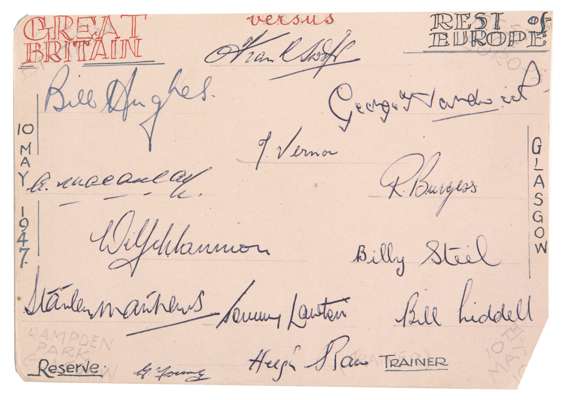 GREAT BRITAIN
versus
REST of EUROPE
Frank Swift
Bill Hughes.
George Hardwick
10 MAY 1947.
J. Vernon
GLASGOW
A. Macaulay
R. Burgess
Wilf Mannion
Billy Steel
Stanley Matthews
Tommy Lawton
Bill Liddell
HAMPDEN PARK
10TH MAY
Reserve.
G Young
Hugh Shaw
TRAINER